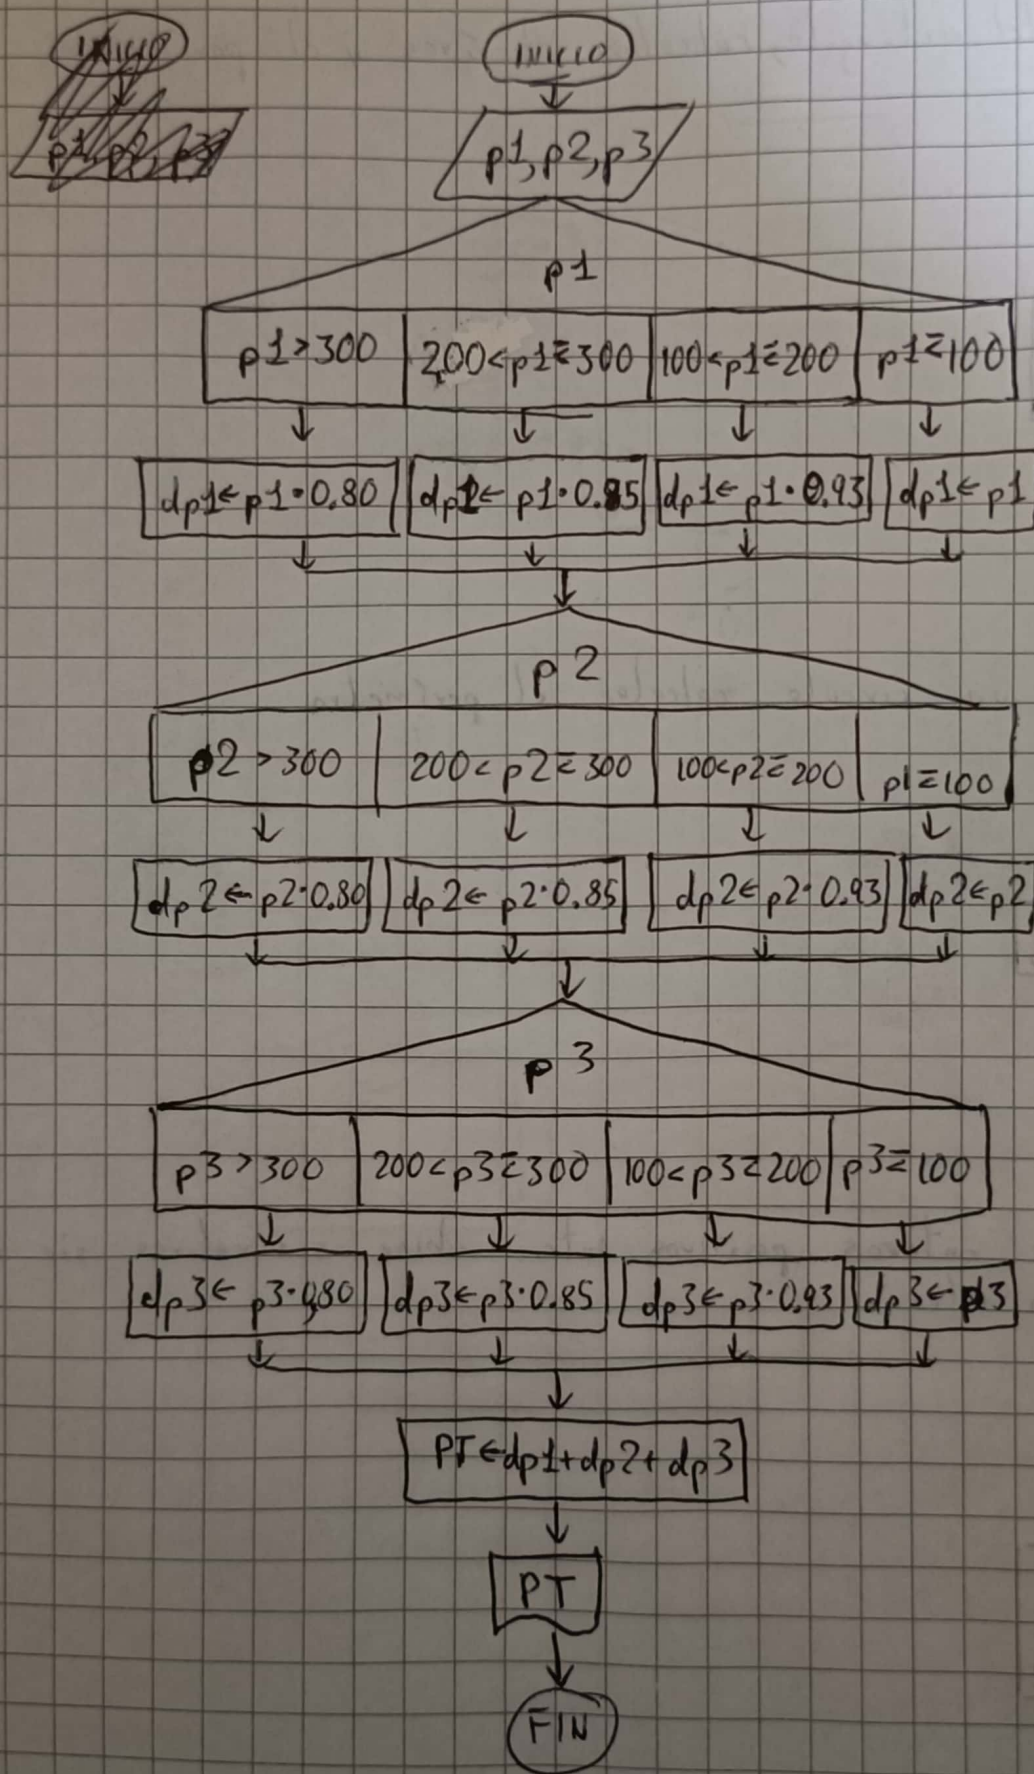 INICIO
p1, p2, p3
INICIO
p1, p2, p3
p1
p1 > 300 200 < p1 ≤ 300 100 < p1 ≤ 200 p1 ≤ 100
dp1 ← p1 · 0.80 dp1 ← p1 · 0.85 dp1 ← p1 · 0.93 dp1 ← p1
p2
p2 > 300 200 < p2 ≤ 300 100 < p2 ≤ 200 p1 ≤ 100
dp2 ← p2 · 0.80 dp2 ← p2 · 0.85 dp2 ← p2 · 0.93 dp2 ← p2
p3
p3 > 300 200 < p3 ≤ 300 100 < p3 ≤ 200 p3 ≤ 100
dp3 ← p3 · 0,80 dp3 ← p3 · 0.85 dp3 ← p3 · 0.93 dp3 ← p3
PT ← dp1 + dp2 + dp3
PT
FIN